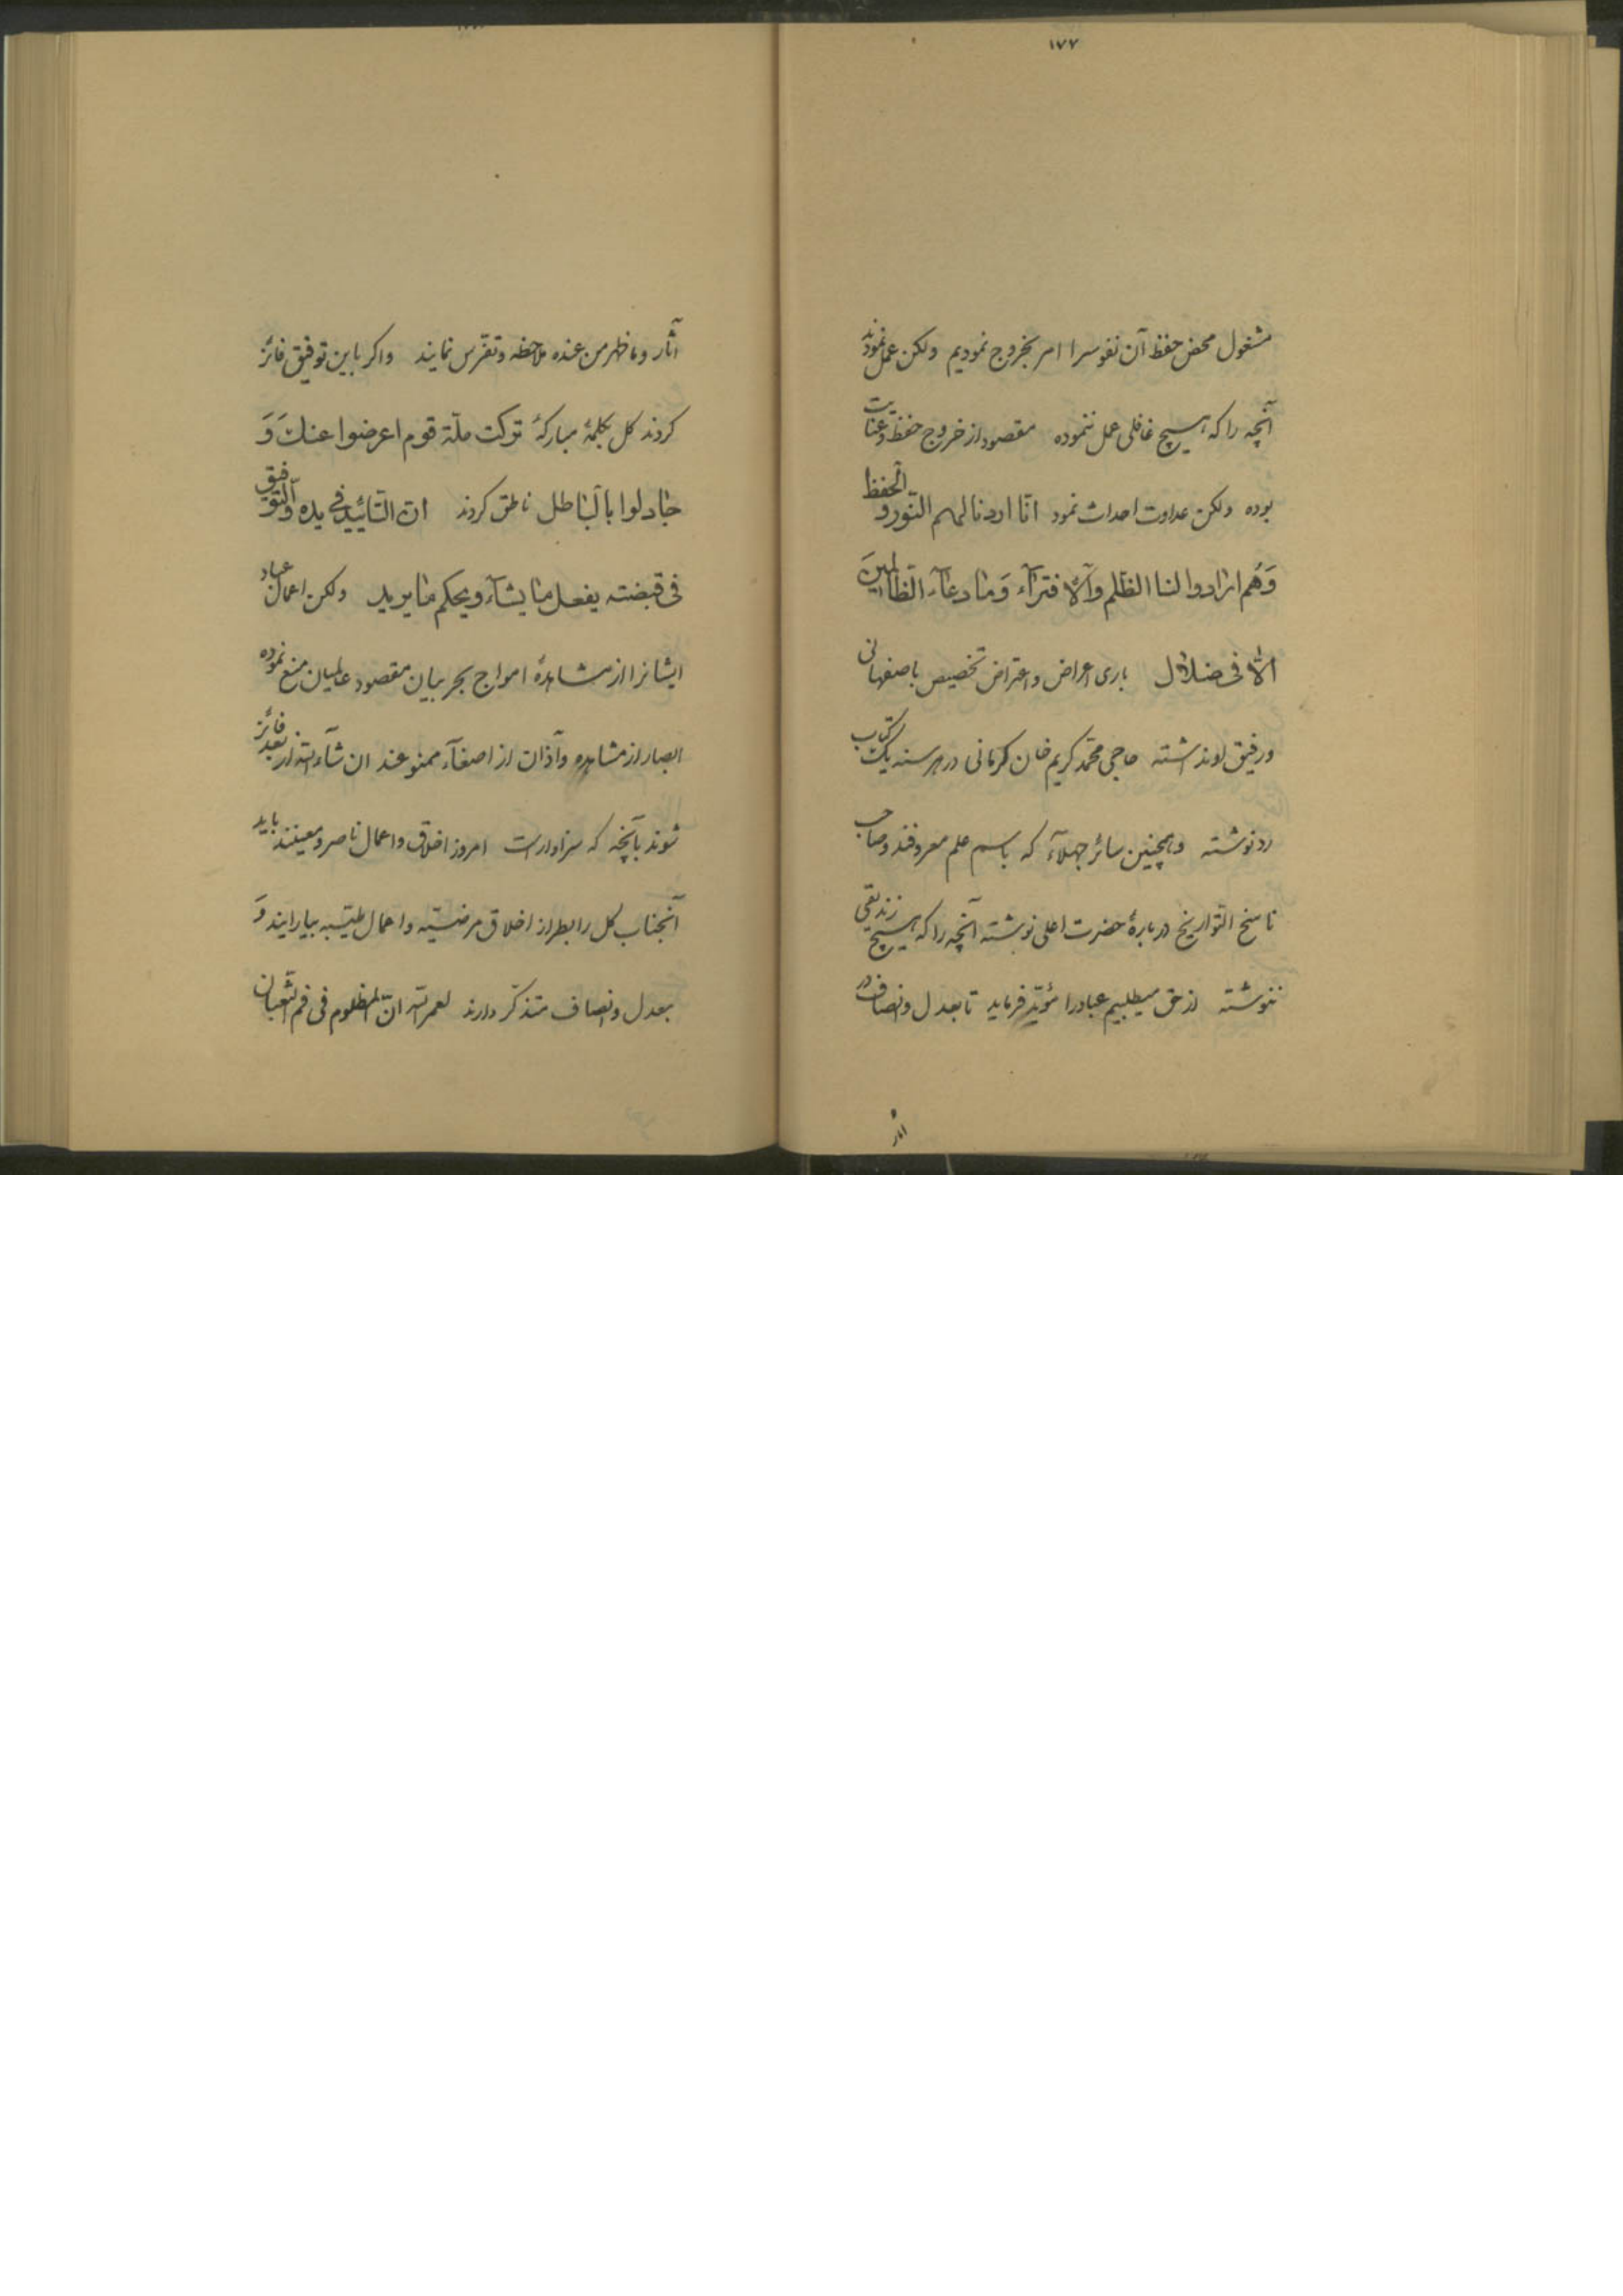 ۱۷۷
مشغول محض حفظ آن نفوسرا امر بخروج نمودیم ولکن عمل نمودند
آنچه را که هیچ غافلی عمل ننموده مقصود از خروج حفظ و عنایت
بوده ولکن عداوت احداث نمود انّا اردنا لهم النّور و الحفظ
وَهُم ارادوا لنا الظّلم و الافترآء وَ ما دعآء الظّالمینَ
الّا فی ضلال باری اعراض و اعتراض تخصیص باصفهانی
و رفیق او نداشته حاجی محمّد کریم خان کرمانی در هر سنه یک کتاب
رد نوشته و همچنین سائر جهلآء که باسم علم معروفند و صاحب
ناسخ التّواریخ دربارهٔ حضرت اعلی نوشته آنچه را که هیچ زندیقی
ننوشته از حق میطلبیم عباد را مؤیّد فرماید تا بعدل و انصاف در
آثار
آثار و ما ظهر من عنده ملاحظه و تفرّس نمایند و اگر باین توفیق فائز
گردند کل بکلمهٔ مبارکهٔ ترکت ملّة قوم اعرضوا عنک وَ
جادلوا بالباطل ناطق گردند انّ التّائید فی یده و التّوفیق
فی قبضته یفعل ما یشآء و یحکم ما یرید ولکن اعمال عباد
ایشانرا از مشاهدهٔ امواج بحر بیان مقصود عالمیان منع نموده
ابصار از مشاهده و آذان از اصغآء ممنوعند ان شآء الله از بعد فائز
شوند بآنچه که سزاوار است امروز اخلاق و اعمال ناصر و معینند باید
آنجناب کل را بطراز اخلاق مرضیّه و اعمال طیّبه بیارایند وَ
بعدل و انصاف متذکّر دارند لعمر الله انّ المظلوم فی فم الثّعبان